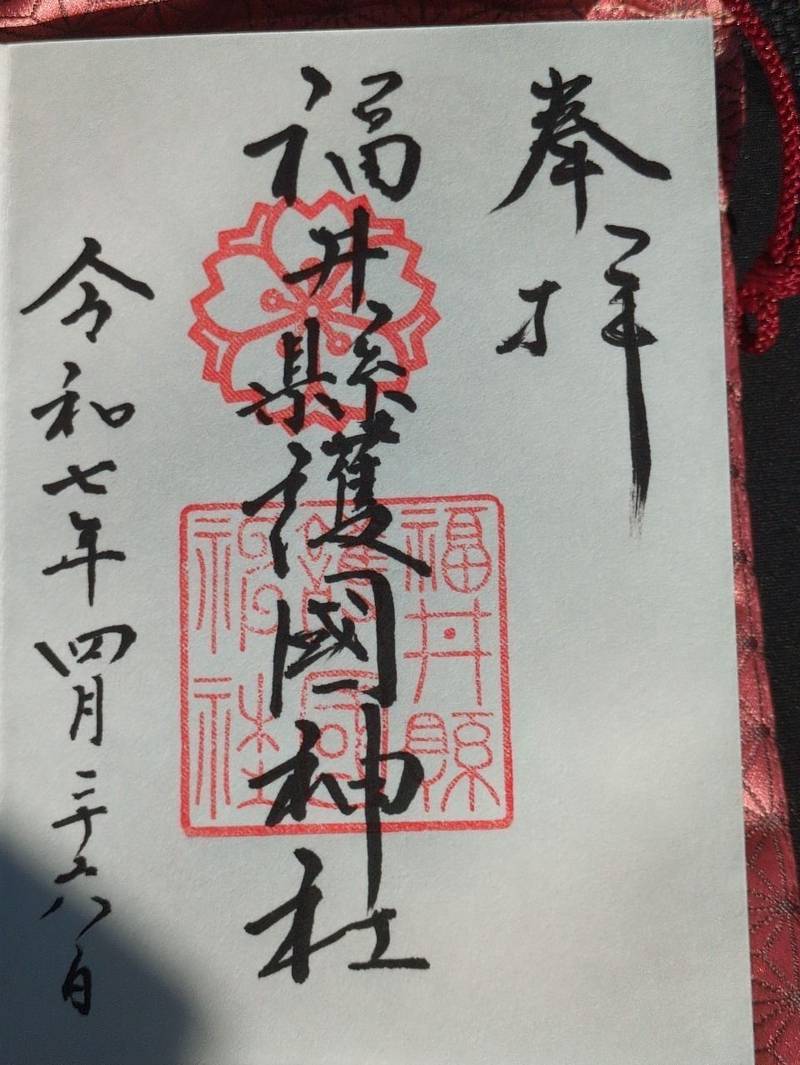 奉拝
福井縣護國神社
福井縣
護國
神社
令和七年四月二十六日